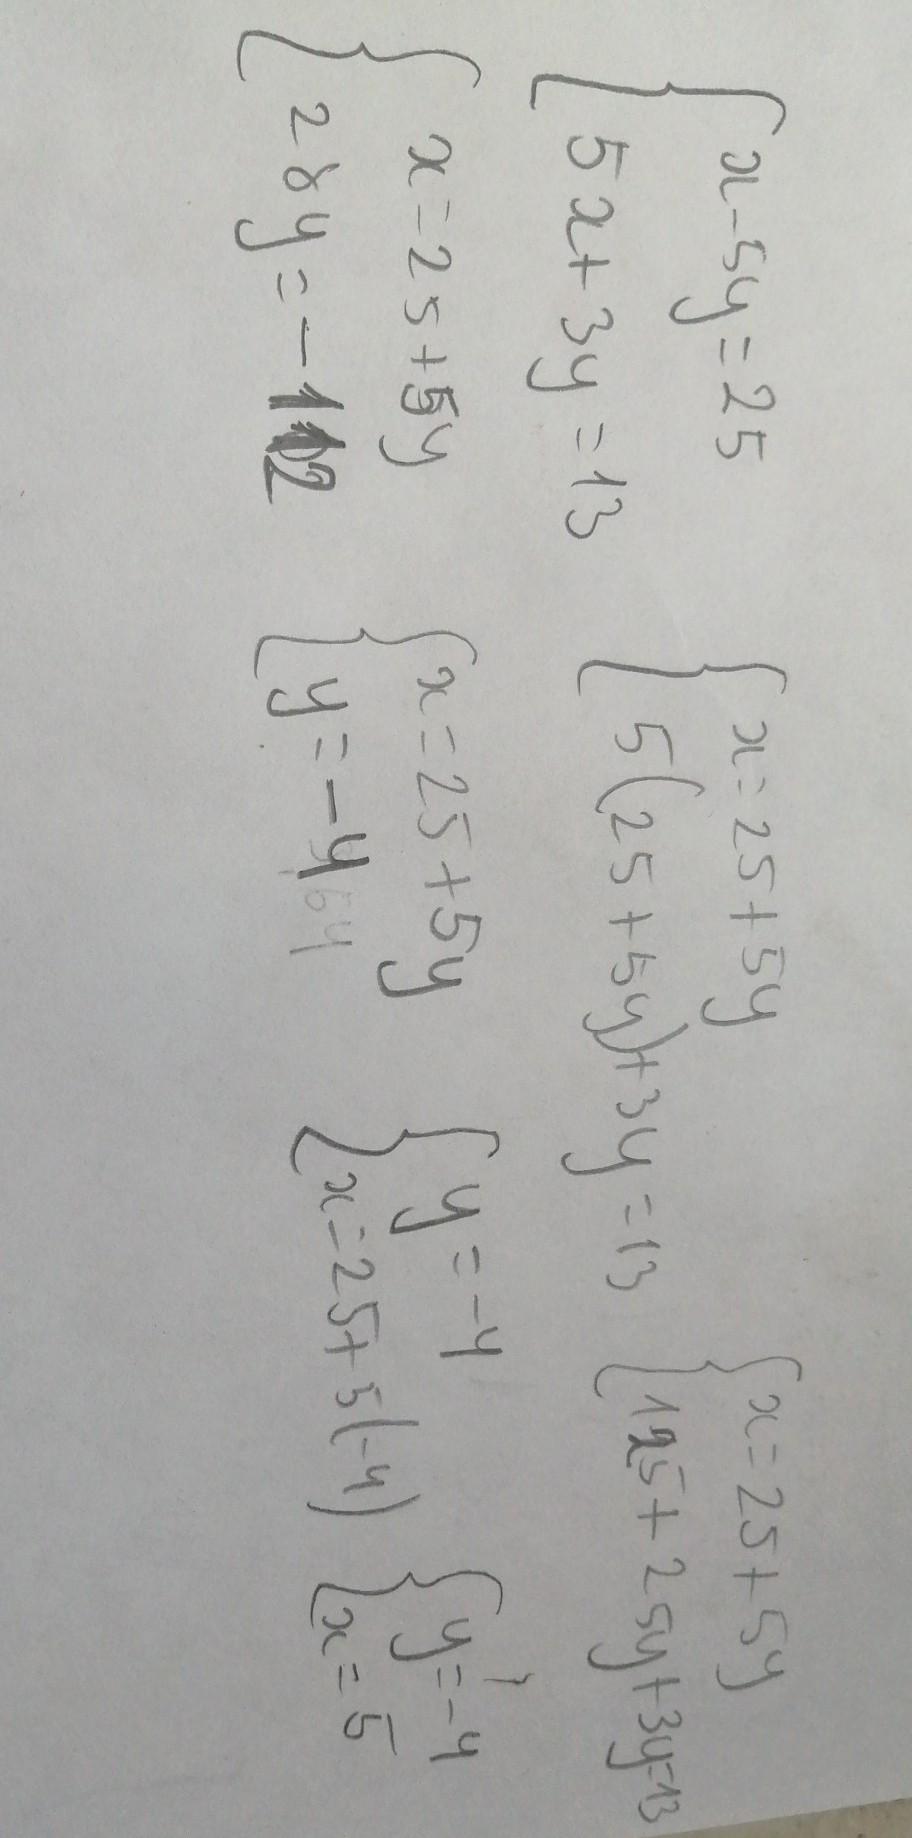 x-5y=25
5x+3y=13
x=25+5y
5(25+5y)+3y=13
x=25+5y
125+25y+3y=13
x=25+5y
28y=-112
x=25+5y
y=-4
y=-4
x=25+5(-4)
y=-4
x=5